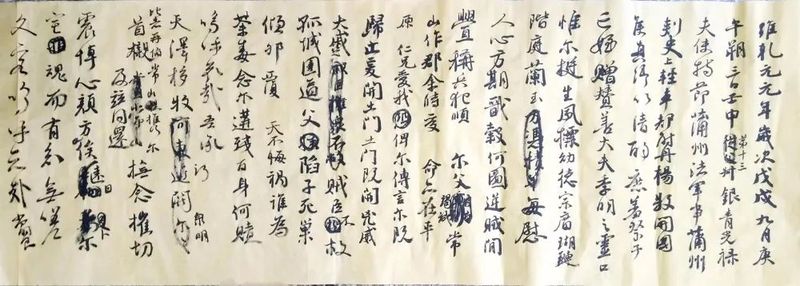 維乾元元年歲次戊戌九月庚
午朔三日壬申第十三叔銀青光祿
夫使持節蒲州諸軍事蒲州
刺史上輕車都尉丹楊縣開國
侯真卿以清酌庶羞祭于
亡姪贈贊善大夫季明之靈曰
惟爾挺生夙標幼德宗廟瑚璉
階庭蘭玉每慰
人心方期戩穀何圖逆賊間
釁稱兵犯順爾父竭誠常
山作郡余時受命亦在平
原仁兄愛我俾爾傳言爾既
歸止爰開土門土門既開凶威
大蹙賊臣不救
孤城圍逼父陷子死巢
傾卵覆天不悔禍誰為
荼毒念爾遘殘百身何贖
嗚呼哀哉吾承
天澤移牧河關泉明
比者再陷常山攜爾
首櫬及茲同還撫念摧切
震悼心顏方俟遠日卜爾
宅魂而有知無嗟
久客嗚呼哀哉尚饗